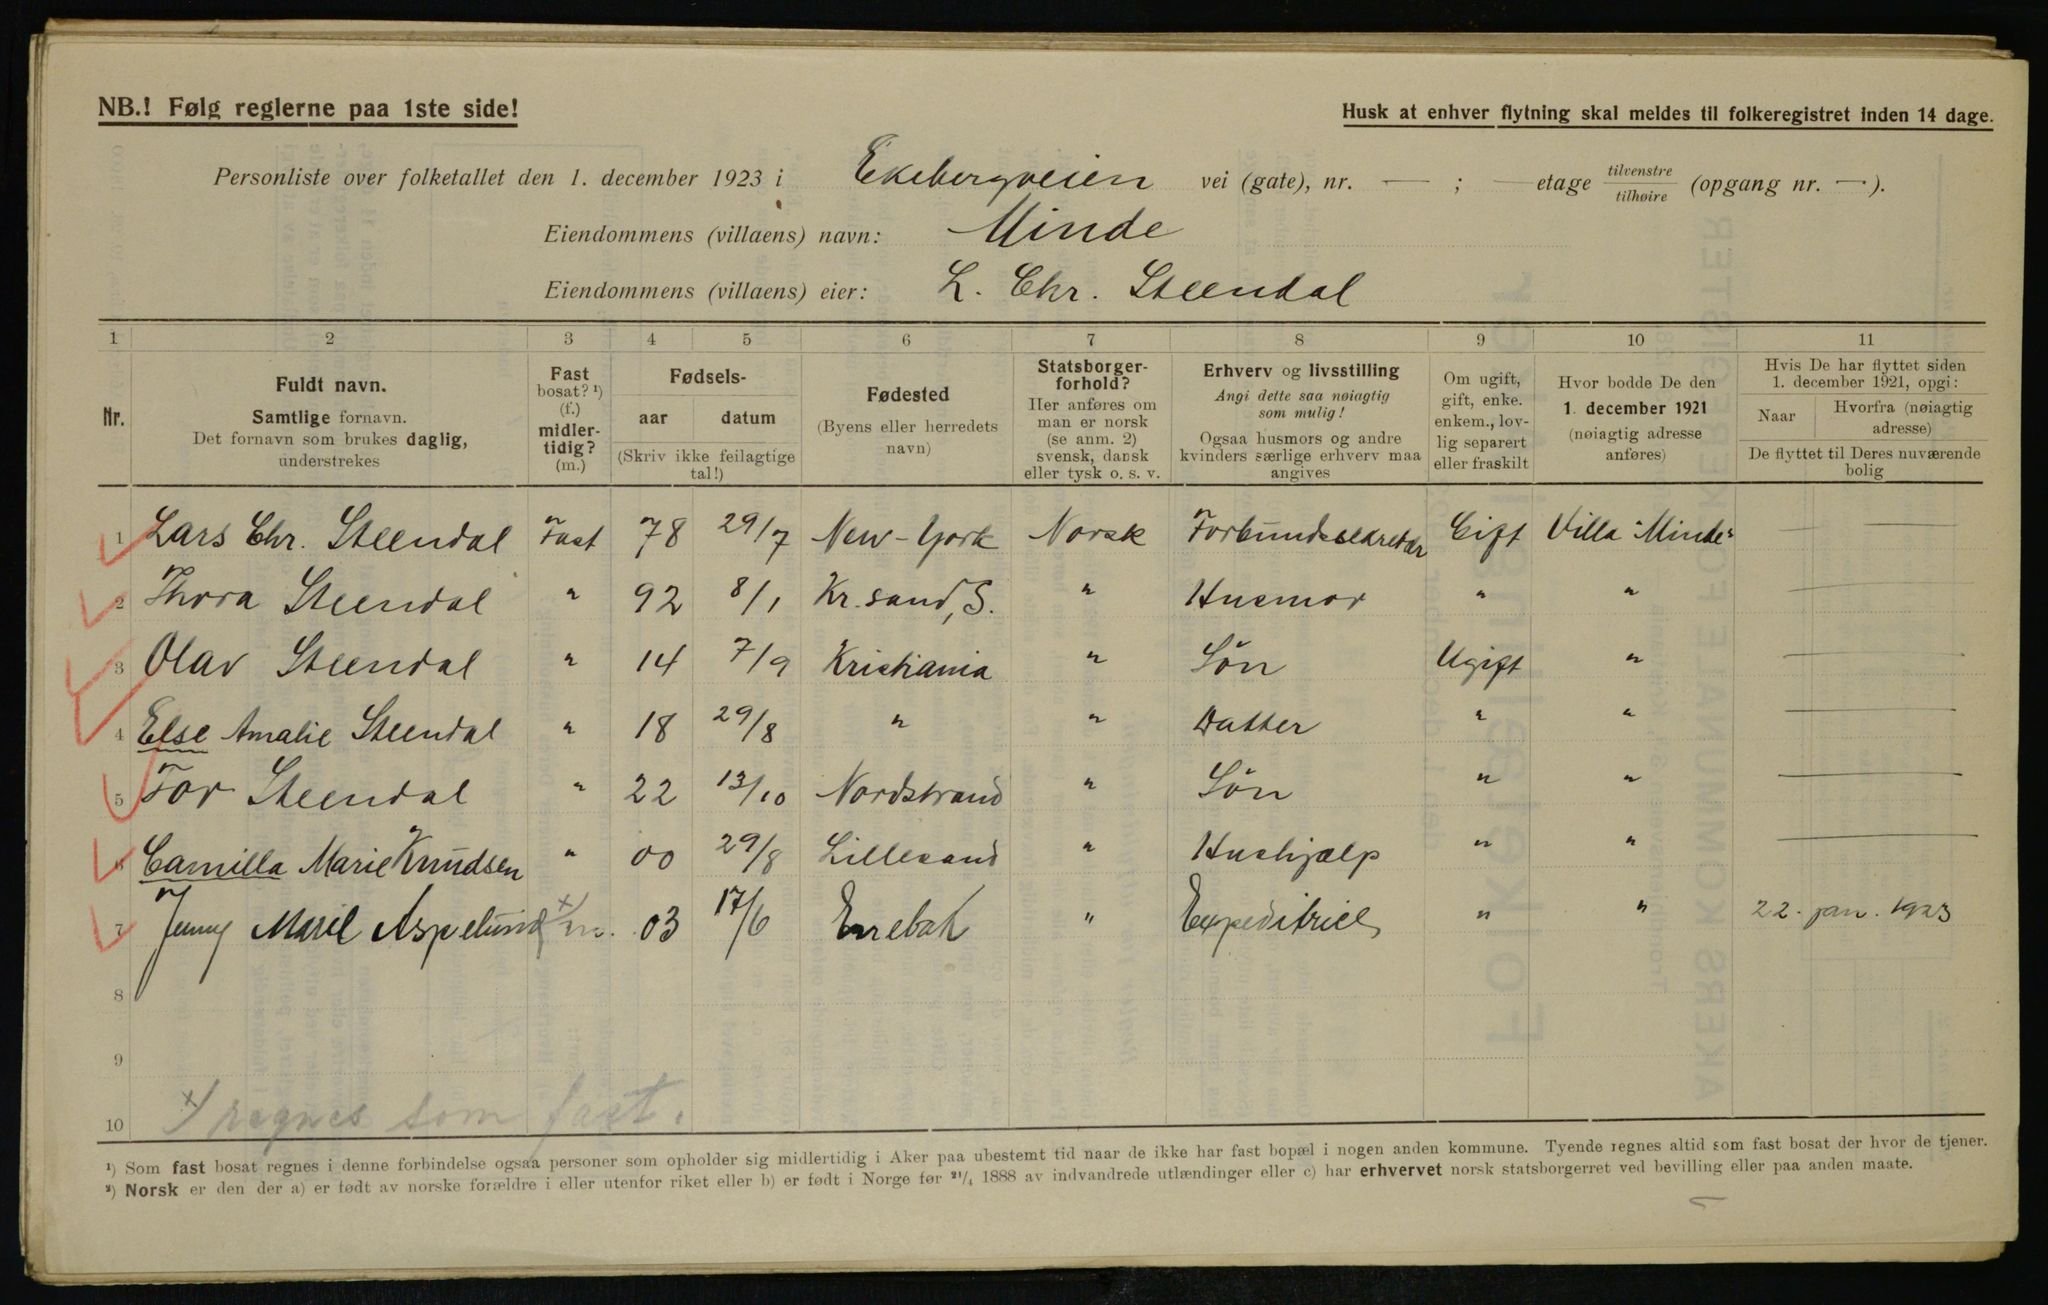 NB.! Følg reglerne paa 1ste side!
Husk at enhver flytning skal meldes til folkeregistret inden 14 dage.
Personliste over folketallet den 1. december 1923 i Ekebergveien vei (gate), nr. — ; — etage tilvenstre / tilhøire (opgang nr. —).
Eiendommens (villaens) navn: Minde
Eiendommens (villaens) eier: L. Chr. Steendal
1 2 3 4 5 6 7 8 9 10 11
Nr.
Fuldt navn.
Samtlige fornavn.
Det fornavn som brukes daglig,
understrekes
Fast
bosat? ¹)
(f.)
midler-
tidig?
(m.)
Fødsels-
aar datum
(Skriv ikke feilagtige
tal!)
Fødested
(Byens eller herredets
navn)
Statsborger-
forhold?
Her anføres om
man er norsk
(se anm. 2)
svensk, dansk
eller tysk o. s. v.
Erhverv og livsstilling
Angi dette saa nøiagtig
som mulig!
Ogsaa husmors og andre
kvinders særlige erhverv maa
angives
Om ugift,
gift, enke.
enkem., lov-
lig separert
eller fraskilt
Hvor bodde De den
1. december 1921
(nøiagtig adresse
anføres)
Hvis De har flyttet siden
1. december 1921, opgi:
Naar
Hvorfra (nøiagtig
adresse)
De flyttet til Deres nuværende
bolig
1 Lars Chr. Steendal Fast 78 29/7 New-York Norsk Forbundssekretær Gift Villa "Minde" —
2 Thora Steendal " 92 8/1 Kr.sand, S. " Husmor " " —
3 Olav Steendal " 14 7/9 Kristiania " Søn Ugift " —
4 Else Amalie Steendal " 18 29/8 " " Datter " " —
5 Tor Steendal " 22 13/10 Nordstrand " Søn " " —
6 Camilla Marie Knudsen " 00 29/8 Lillesand " Hushjælp " " —
7 Jenny Marie Aspelund x/ m. 03 17/6 Enebak " Expeditrice " " 22. jan. 1923
8
9
10 x/ regnes som fast.
¹) Som fast bosat regnes i denne forbindelse ogsaa personer som opholder sig midlertidig i Aker paa ubestemt tid naar de ikke har fast bopæl i nogen anden kommune. Tyende regnes altid som fast bosat der hvor de tjener.
²) Norsk er den der a) er født av norske forældre i eller utenfor riket eller b) er født i Norge før ²¹/₄ 1888 av indvandrede utlændinger eller c) har erhvervet norsk statsborgerret ved bevilling eller paa anden maate.